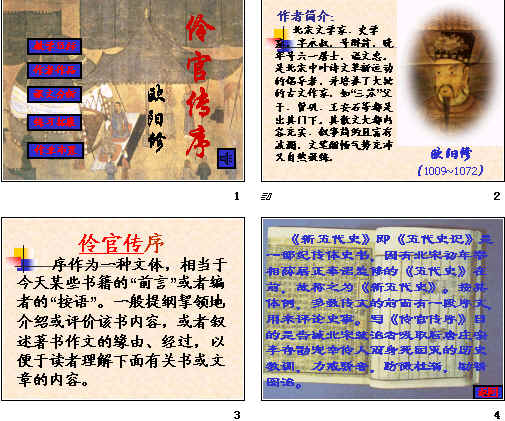 伶官传序
欧阳修
1
作者简介:
北宋文学家、史学
家。字永叔，号醉翁，晚
年号六一居士，谥文忠。
是北宋中叶诗文革新运动
的倡导者，并培养了大批
的古文作家，如“三苏”父
子、曾巩、王安石等都是
出其门下。其散文大都内
容充实，叙事简约且富有
波澜，文笔酣畅气势充沛
又自然凝练。
欧阳修
(1009~1072)
2
伶官传序
序作为一种文体，相当于
今天某些书籍的“前言”或者编
者的“按语”。一般提纲挈领地
介绍或评价该书内容，或者叙
述著书作文的缘由、经过，以
便于读者理解下面有关书或文
章的内容。
3
《新五代史》即《五代史记》是
一部纪传体史书，因有北宋初年宰
相薛居正奉诏监修的《五代史》在
前，故称之为《新五代史》。按其
体例，多数传文的前面有一段序文，
用来评论史事。写《伶官传序》目
的是告诫北宋统治者吸取后唐庄宗
李存勖宠幸伶人而身死国灭的历史
教训，力戒骄奢，防微杜渐，励精
图治。
4